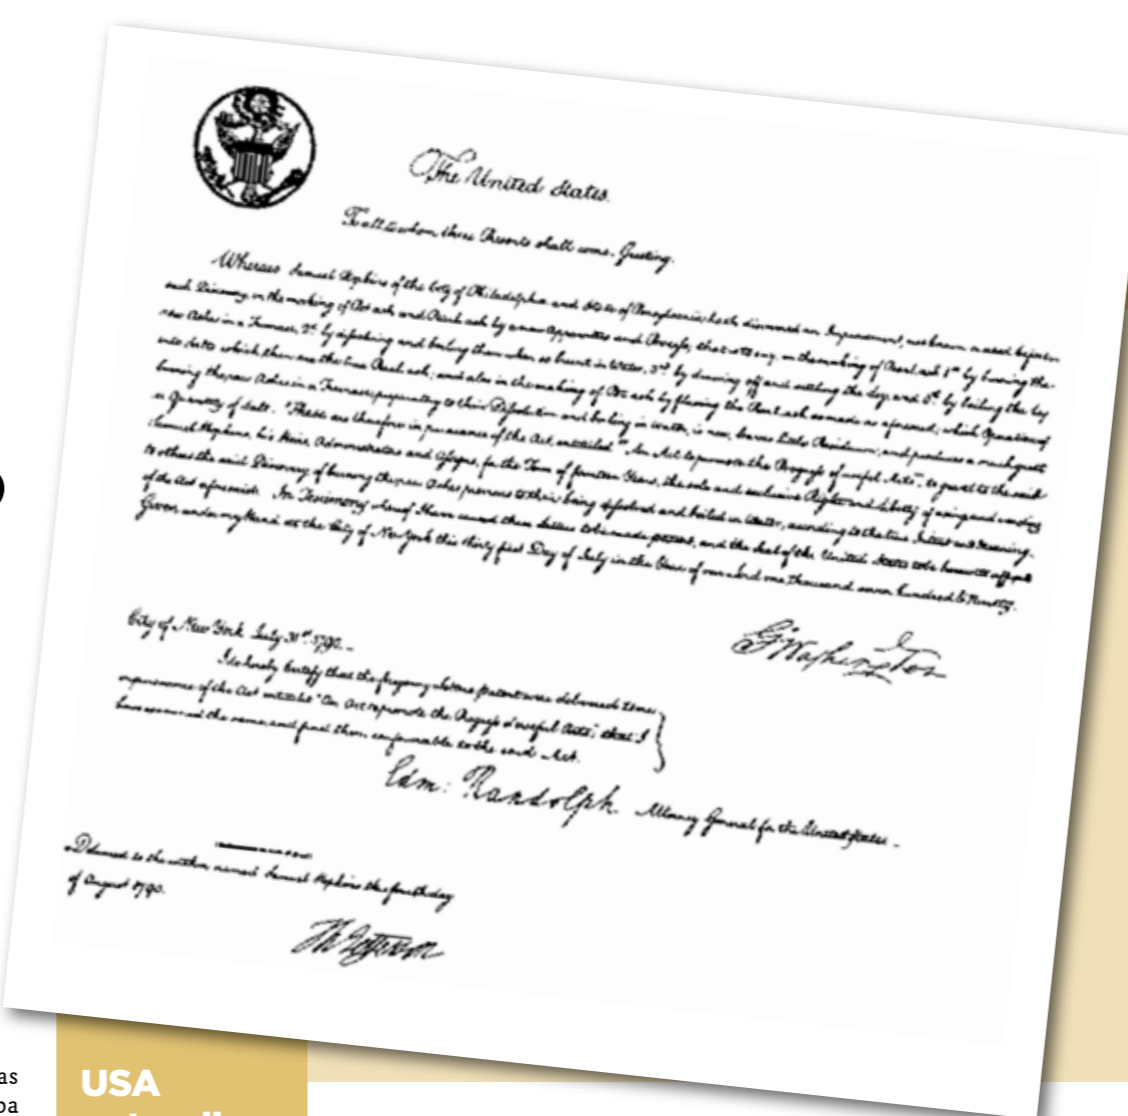 The United States.
To all to whom these Presents shall come, Greeting.
Whereas Samuel Hopkins of the City of Philadelphia and State of Pensylvania hath discovered an Improvement, not known or used before such
Discovery, in the making of Pot ash and Pearl ash by a new Apparatus and Process; that is to say, in the making of Pearl ash 1st by burning the
raw Ashes in a Furnace, 2d by dissolving and boiling them when so burnt in Water, 3rd by drawing off and settling the ley, and 4th by boiling the ley
into Salts which then are the true Pearl ash; and also in the making of Pot ash by fluxing the Pearl ash so made as aforesaid; which Operation of
burning the raw Ashes in a Furnace, preparatory to their Dissolution and boiling in Water, is new, leaves little Residuum; and produces a much greater
Quantity of Salt: These are therefore in pursuance of the Act, entituled "An Act to promote the Progress of useful Arts", to grant to the said
Samuel Hopkins, his Heirs, Administrators and Assigns, for the Term of fourteen Years, the sole and exclusive Right and Liberty of using and vending
to others the said Discovery of burning the raw Ashes previous to their being dissolved and boiled in Water, according to the true Intent and Meaning
of the Act aforesaid. In Testimony whereof I have caused these Letters to be made patent, and the Seal of the United States to be hereunto affixed
Given under my Hand at the City of New York this thirty first Day of July in the Year of our Lord one thousand seven hundred & Ninety.
G Washington
City of New York July 31st 1790. -
I do hereby Certify that the foregoing Letters patent were delivered to me
in pursuance of the Act entituled "An Act to promote the Progress of useful Arts"; that I
have examined the same, and find them conformable to the said Act.
Edm: Randolph Attorney General for the United States. -
Delivered to the within named Samuel Hopkins this fourth day
of August 1790.
Th Jefferson
as
USA